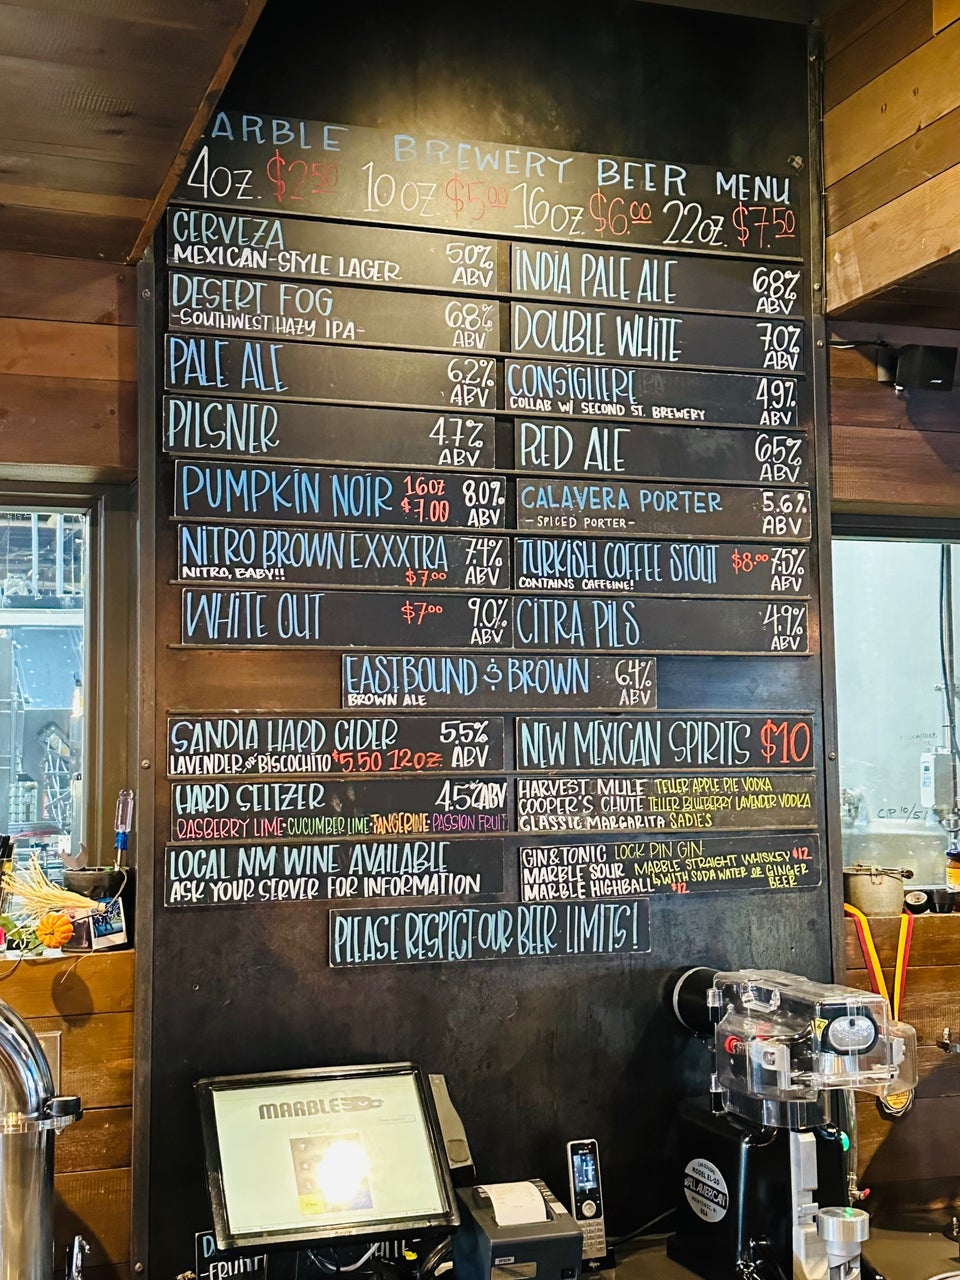 ARBLE BREWERY BEER MENU
4oz. $2.50 10oz $5.00 16oz. $6.00 22oz. $7.50
CERVEZA 5.0% ABV
MEXICAN-STYLE LAGER
DESERT FOG 6.8% ABV
-SOUTHWEST HAZY IPA-
PALE ALE 6.2% ABV
PILSNER 4.7% ABV
PUMPKIN NOIR 16oz $7.00 8.0% ABV
NITRO BROWN EXXXTRA 7.4% ABV
NITRO, BABY!! $7.00
WHITE OUT $7.00 9.0% ABV
INDIA PALE ALE 6.8% ABV
DOUBLE WHITE 7.0% ABV
CONSIGLIERE 4.9% ABV
COLLAB W/ SECOND ST. BREWERY
RED ALE 6.5% ABV
CALAVERA PORTER 5.6% ABV
-SPICED PORTER-
TURKISH COFFEE STOUT $8.00 7.5% ABV
CONTAINS CAFFEINE!
CITRA PILS 4.9% ABV
EASTBOUND & BROWN 6.4% ABV
BROWN ALE
SANDIA HARD CIDER 5.5% ABV
LAVENDER or BISCOCHITO $5.50 12oz
HARD SELTZER 4.5% ABV
RASBERRY LIME-CUCUMBER LIME-TANGERINE-PASSION FRUIT
LOCAL NM WINE AVAILABLE
ASK YOUR SERVER FOR INFORMATION
NEW MEXICAN SPIRITS $10
HARVEST MULE TELLER APPLE PIE VODKA
COOPER'S CHUTE TELLER BLUEBERRY LAVENDER VODKA
CLASSIC MARGARITA SADIE'S
GIN & TONIC LOCK PIN GIN
MARBLE SOUR MARBLE STRAIGHT WHISKEY $12
MARBLE HIGHBALL WITH SODA WATER OR GINGER BEER
$12
PLEASE RESPECT OUR BEER LIMITS!
MARBLE
MODEL EL-00
ALL AMERICAN
EPSON
-FRUIT
CP 10/51